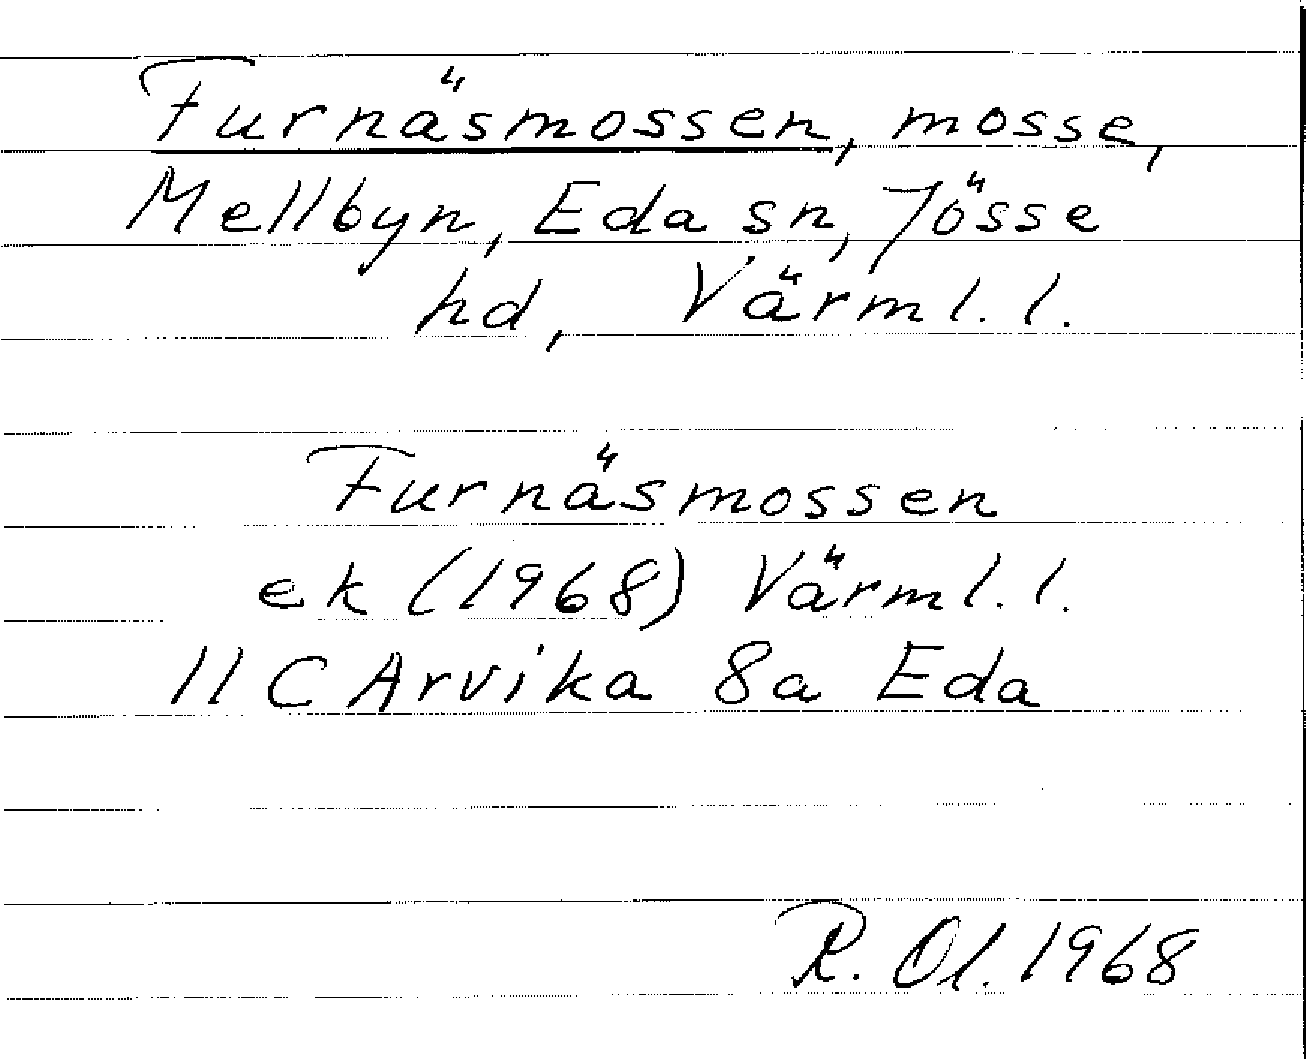 Furnäsmossen, mosse,
Mellbyn, Eda sn, Jösse
hd, Värml. l.
Furnäsmossen
ek (1968) Värml. l.
11 C Arvika 8a Eda
R. Ol. 1968